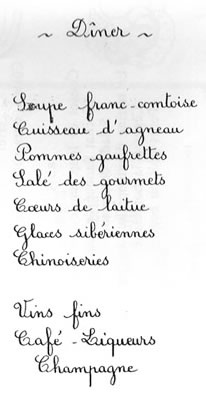 ~ Dîner ~
Soupe franc-comtoise
Cuisseau d'agneau
Pommes gaufrettes
Salé des gourmets
Cœurs de laitue
Glaces sibériennes
Chinoiseries
Vins fins
Café - Liqueurs
Champagne